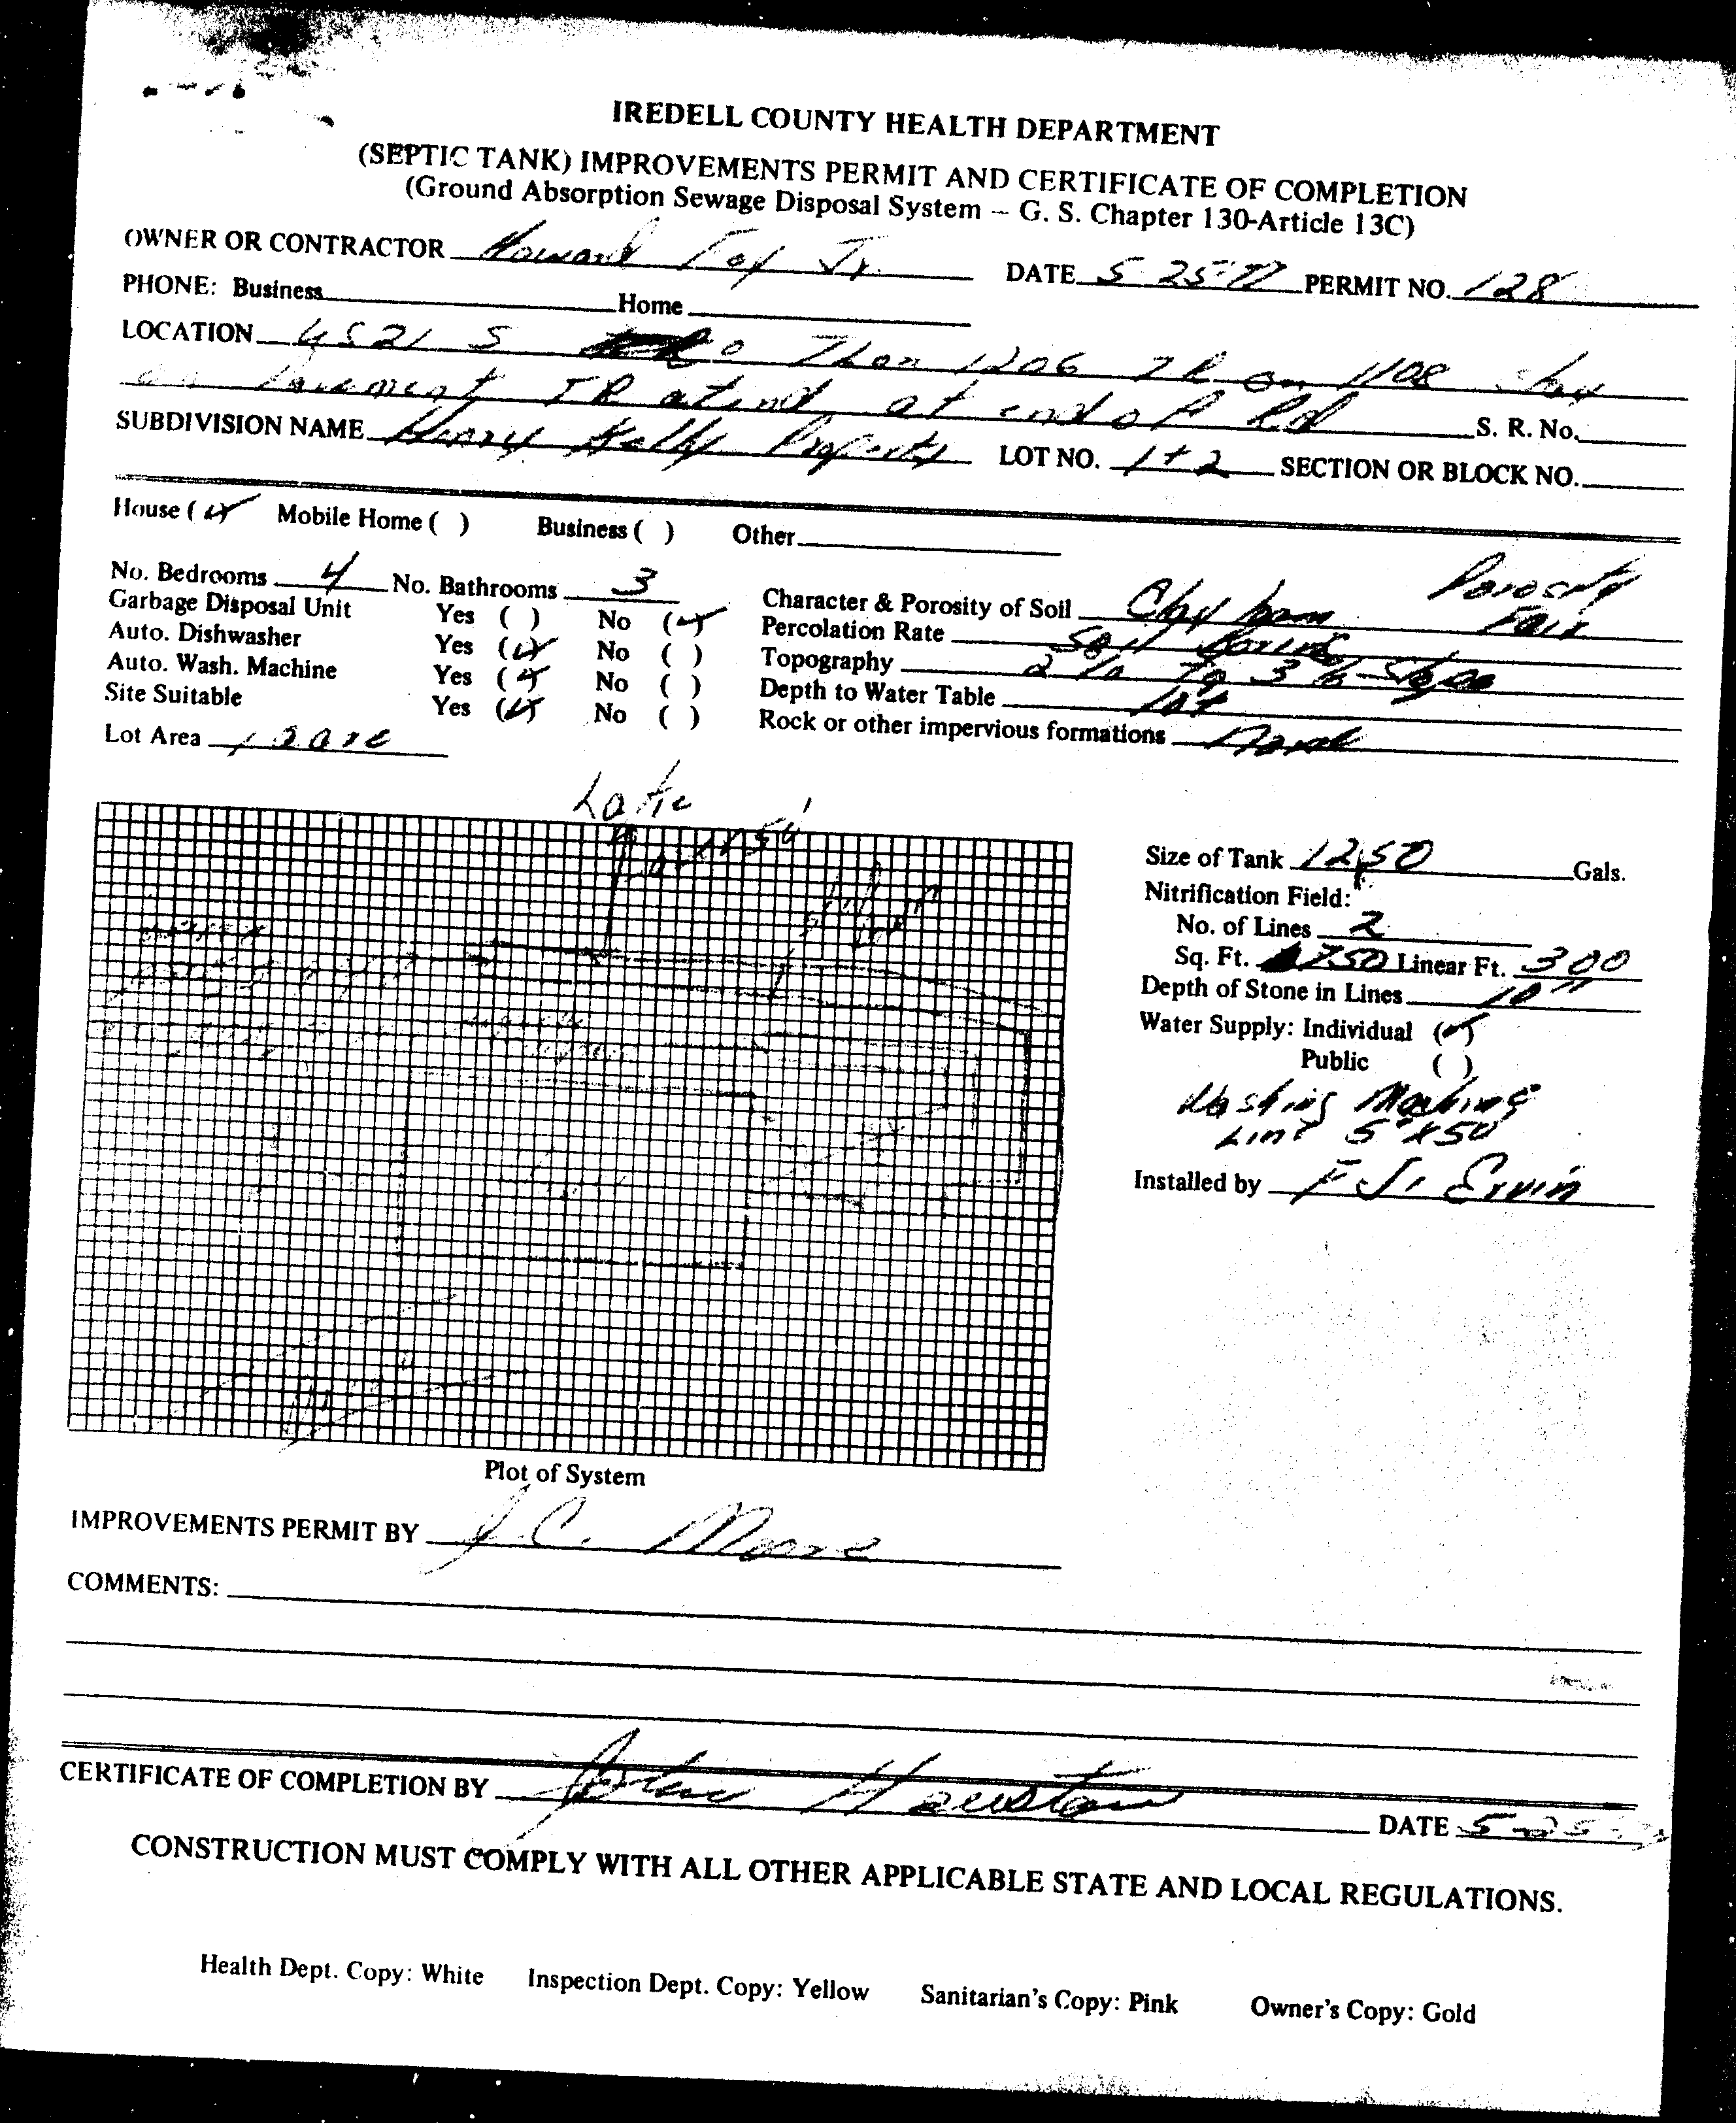 IREDELL COUNTY HEALTH DEPARTMENT
(SEPTIC TANK) IMPROVEMENTS PERMIT AND CERTIFICATE OF COMPLETION
(Ground Absorption Sewage Disposal System – G. S. Chapter 130-Article 13C)
OWNER OR CONTRACTOR Howard Fox Jr. DATE 5 25-77 PERMIT NO. 128
PHONE: Business Home
LOCATION 4521 S Then 1206 TR on 1108 stay
on Pavement TR at end at end of Rd S. R. No.
SUBDIVISION NAME Henry Kelly Property LOT NO. 1+2 SECTION OR BLOCK NO.
House (✓) Mobile Home ( ) Business ( ) Other
No. Bedrooms 4 No. Bathrooms 3
Garbage Disposal Unit Yes ( ) No (✓)
Auto. Dishwasher Yes (✓) No ( )
Auto. Wash. Machine Yes (✓) No ( )
Site Suitable Yes (✓) No ( )
Lot Area
Porosity
Character & Porosity of Soil Clay loam Fair
Percolation Rate Soil Boring
Topography 2% To 3% Slope
Depth to Water Table
Rock or other impervious formations None
Lake
Size of Tank 1250 Gals.
Nitrification Field:
No. of Lines 2
Sq. Ft. 750 Linear Ft. 300
Depth of Stone in Lines 10"
Water Supply: Individual (✓)
Public ( )
Washing Machine
Line 5'x50'
Installed by F J. Ervin
Plot of System
IMPROVEMENTS PERMIT BY J.C. Moore
COMMENTS:
CERTIFICATE OF COMPLETION BY Houston DATE 5-25-
CONSTRUCTION MUST COMPLY WITH ALL OTHER APPLICABLE STATE AND LOCAL REGULATIONS.
Health Dept. Copy: White Inspection Dept. Copy: Yellow Sanitarian's Copy: Pink Owner's Copy: Gold